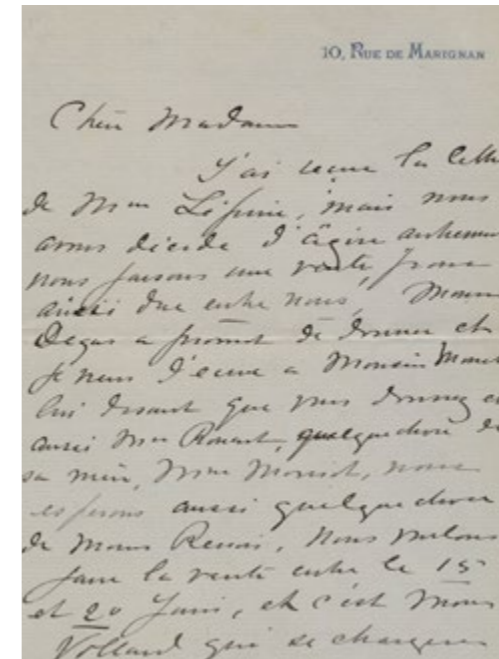 10, RUE DE MARIGNAN
Chère Madame
J'ai reçue la lettre
de Mme Lépine, mais nous
avons décidé d'âgire autrement
nous faisons une vente, pour
ainsi dire entre nous, Monsieur
Degas a promit de donner et
je viens d'ecrire a Monsieur Monet
lui disant que vous donnez et
aussi Mme Rouart, quelquechose de
sa mère, Mme Morisot, nous
esperons aussi quelquechose
de Mons Renoir. Nous voulons
faire la vente entre le 15
et 20 Juin, et c'est Mons
Vollard qui se chargera